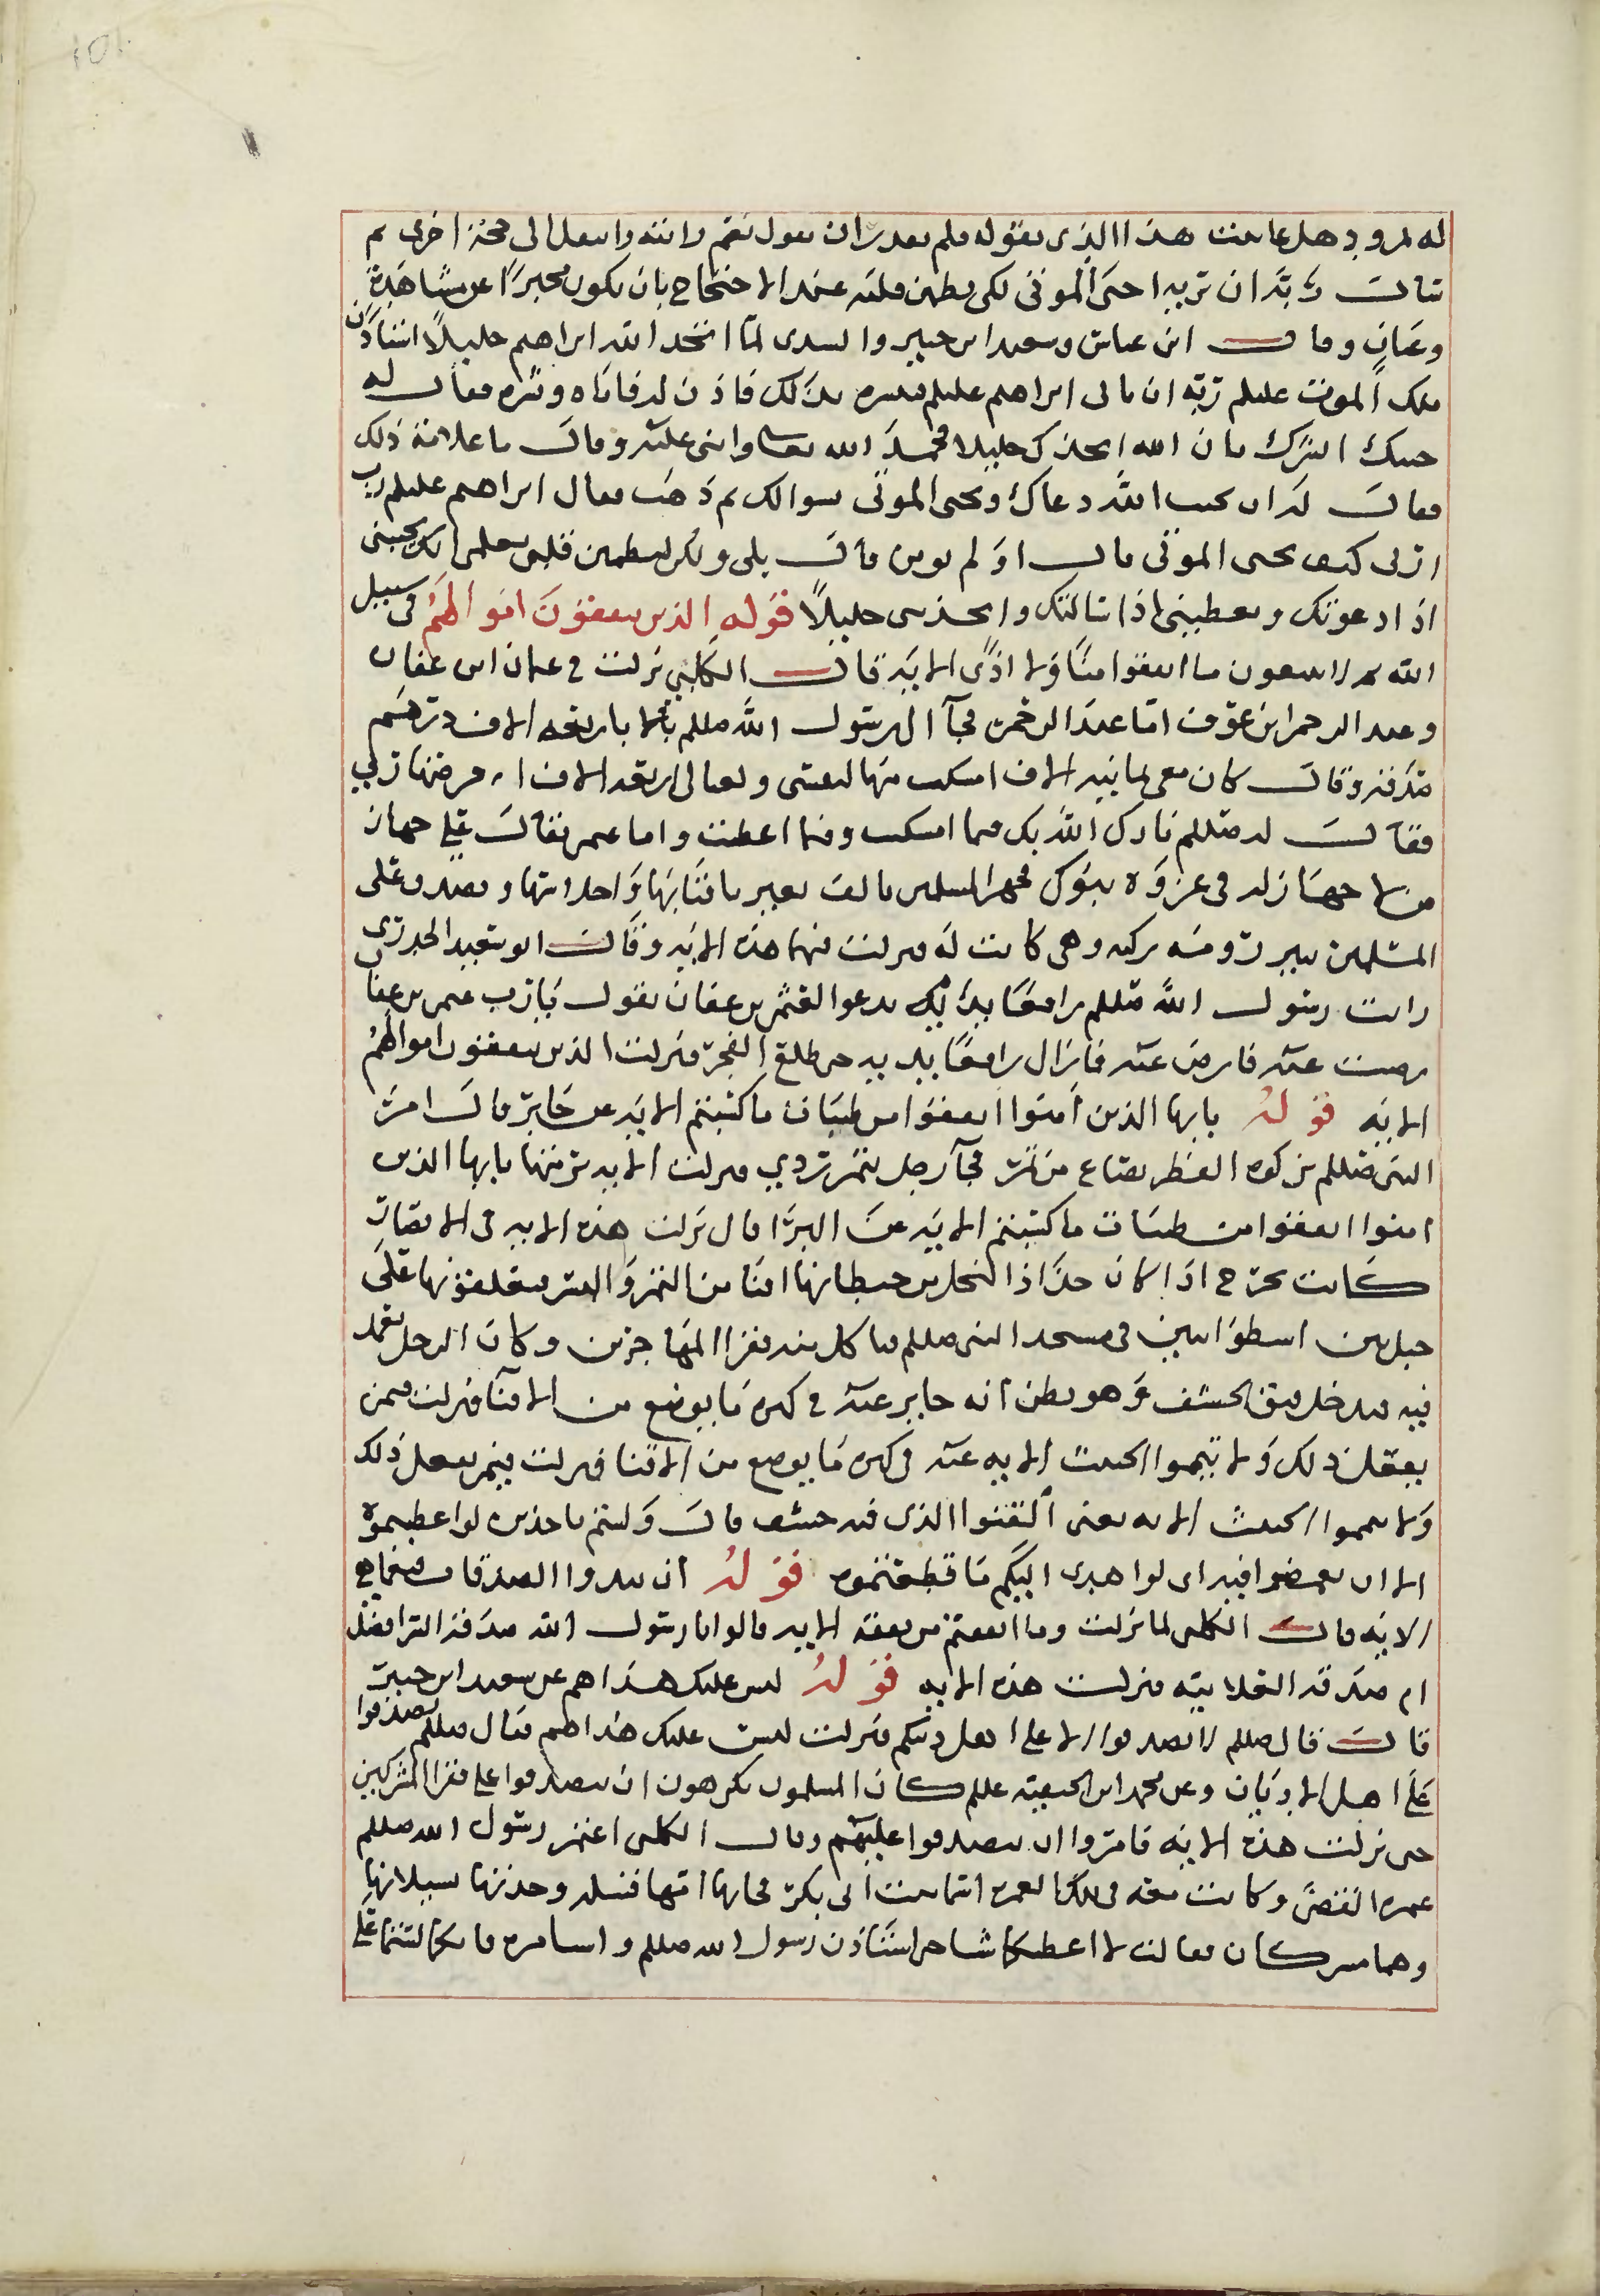 له نمرود هل عاينت هذا الذى تقوله فلم يقدر ان يقول نعم رايته وانتقل الى حجة اخرى ثم
سال ربه ان يريه احيى الموتى لكى يطمئن قلبه عند الاحتجاج بان يكون مخبرًا عن مشاهدة
وعيان وقال ابن عباس وسعيد ابن جبير والسدى لما اتخذ الله ابراهيم خليلاً استاذن
ملك الموت عليلم ربه ان ياتى ابراهيم عليلم فيبشره بذلك فاذن له فاتاه وبشره فقال له
جيتك ابشرك بان الله اتخذك خليلا فحمد الله تعالى واثنى عليه وقال ما علامة ذلك
فقال له ان يجيب الله دعاك ويحيى الموتى بسوالك ثم ذهب فقال ابراهيم عليلم رب
ارنى كيف تحيى الموتى قال او لم تومن قال بلى ولكن ليطمئن قلبى بعلمى انك تجيبنى
اذا دعوتك وتعطينى اذا سالتك واتخذتنى خليلاً قوله الذين ينفقون اموالهم فى سبيل
الله ثم لا يتبعون ما انفقوا منًا ولا اذًى الاية قال الكلبى نزلت فى عثمان ابن عفان
وعبد الرحمن ابن عوف اما عبد الرحمن فجآ الى رسول الله صللم باربعه الاف درهم
صدقة وقال كان معى ثمانية الاف امسكت منها لنفسى ولعيالى اربعه الاف اقرضتها ربى
فقال له صللم بارك الله بك فيما امسكت وفيما اعطيت واما عثمن فقال على جهاز
من لا جهاز له فى غزوة تبوك فجهز المسلمين بالف بعير باقتابها واحلاسها وتصدق على
المسلمين ببير رومه ركيه وهى كانت له فنزلت فيهما هذه الاية وقال ابو سعيد الخدرى
رايت رسول الله صللم رافعًا يديه يدعوا لعثمن بن عفان يقول يا رب عثمن بن عفان
رضيت عنه فارض عنه فما زال رافعًا يديه حتى طلع الفجر فنزلت الذين ينفقون اموالهم
الايه قوله يايها الذين آمنوا انفقوا من طيبات ما كسبتم الايه عن جابر قال امر
النبى صللم بزكوه الفطر بصاع من تمر فجآ رجل بتمر ردي فنزلت الايه يايها الذين
امنوا انفقوا من طيبات ما كسبتم الايه عن البرا قال نزلت هذه الايه فى الانصار
كانت تخرج اذا كان جذاذ النخل من حيطانها اقنا من التمر والبسر فيعلقونها على
حبل بين اسطوانتين فى مسجد النبى صللم فياكل منه فقرا المهاجرين وكان الرجل يعمد
فيه فيدخل قنو الحشف وهو يظن انه جايز عنه فى كثرة ما يوضع من الاقنآ فنزلت فيمن
يفعل ذلك ولا تيمموا الخبيث الايه عنه فى كثرة ما يوضع من الاقنا فنزلت فيمن يفعل ذلك
ولا تيمموا الخبيث الايه يعنى القنوا الذى فيه حشف قال ولستم باخذيه لو اعطيتموه
الا ان تغمضوا فيه اى لو اهدى اليكم ما قطعتموه قوله ان تبدوا الصدقات فنعما هى
الايه قال الكلبى لما نزلت وما انفقتم من نفقه الايه قالوا يا رسول الله صدقة السر افضل
ام صدقة العلانيه فنزلت هذه الايه قوله ليس عليك هداهم عن سعيد ابن جبير
قال قال صللم لا تصدقوا الا على اهل دينكم فنزلت ليس عليك هداهم فقال صللم تصدقوا
على اهل الاديان وعن محمد ابن الحنفيه عللم كان المسلمون يكرهون ان يتصدقوا على فقرا المشركين
حتى نزلت هذه الايه فامروا ان يتصدقوا عليهم وقال الكلبى اعتمر رسول الله صللم
عمرة القضى وكانت معه فى تلك العمره اسما بنت ابى بكر فجاتها امها فتيله وجدتها يسيلانها
وهما مشركتان فقالت لا اعطيكما شيا حتى استاذن رسول الله صللم واستامره فانكما لستما على